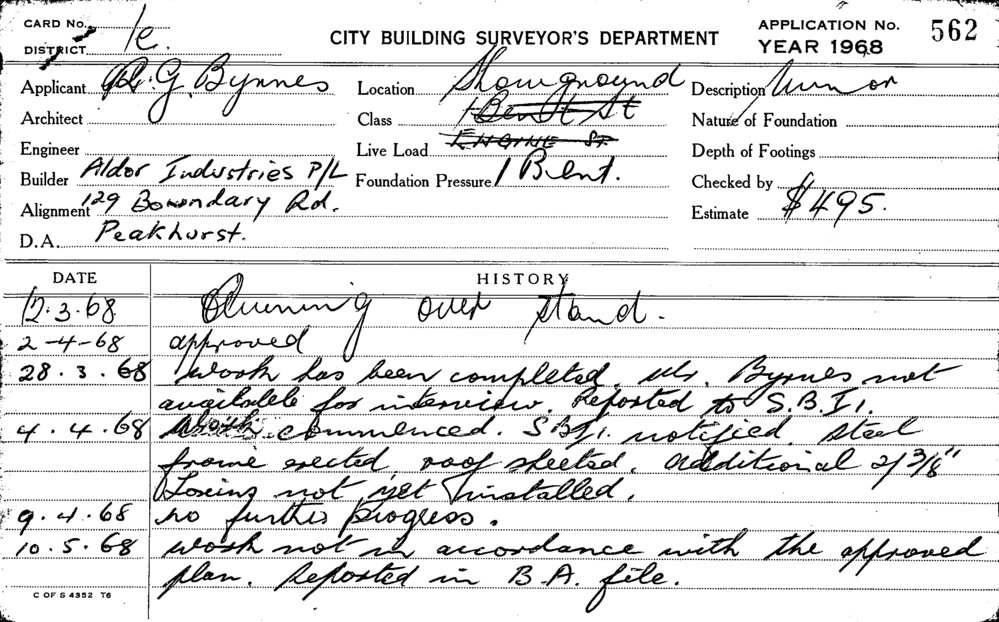 CARD No.
DISTRICT 1c.
CITY BUILDING SURVEYOR'S DEPARTMENT
APPLICATION No. 562
YEAR 1968
Applicant G. Byrnes
Location Showground
Description Junior
Architect
Class 1 Bent St
Nature of Foundation
Engineer
Live Load ENGINE ST.
Depth of Footings
Builder Aldor Industries P/L
Foundation Pressure 1 Bent.
Checked by
Alignment 129 Boundary Rd.
Estimate $495.
D.A. Peakhurst.
DATE HISTORY
12.3.68 over stand.
2-4-68 approved
28.3.68 work has been completed. Mr. Byrnes not
available for interview. Reported to S.B.I1.
4.4.68 Work commenced. S.B.I1. notified. Steel
frame erected, roof sheeted. Additional 2/ 3/8"
not yet installed.
9.4.68 no further progress.
10.5.68 work not in accordance with the approved
plan. Reported in B.A. file.
C OF S 4352 T6